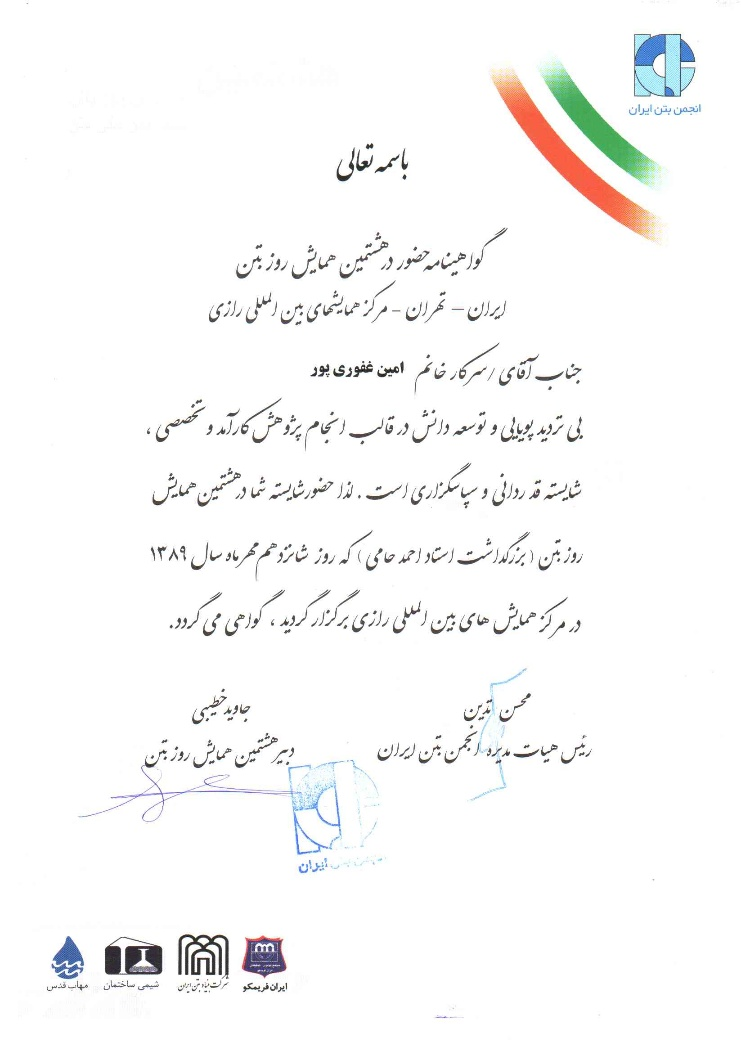 انجمن بتن ایران
باسمه تعالی
گواهینامه حضور در هشتمین همایش روز بتن
ایران – تهران – مرکز همایشهای بین المللی رازی
جناب آقای / سرکار خانم امین غفوری پور
بی تردید پویایی و توسعه دانش در قالب انجام پژوهش کارآمد و تخصصی ،
شایسته قدردانی و سپاسگزاری است . لذا حضور شایسته شما در هشتمین همایش
روز بتن ( بزرگداشت استاد احمد حامی ) که روز شانزدهم مهرماه سال ۱۳۸۹
در مرکز همایش های بین المللی رازی برگزار گردید ، گواهی می گردد.
محسن تدین
رئیس هیات مدیره انجمن بتن ایران
جاوید خطیبی
دبیر هشتمین همایش روز بتن
انجمن بتن ایران
ایران فریمکو
شرکت بنیاد بتن ایران
شیمی ساختمان
مهاب قدس